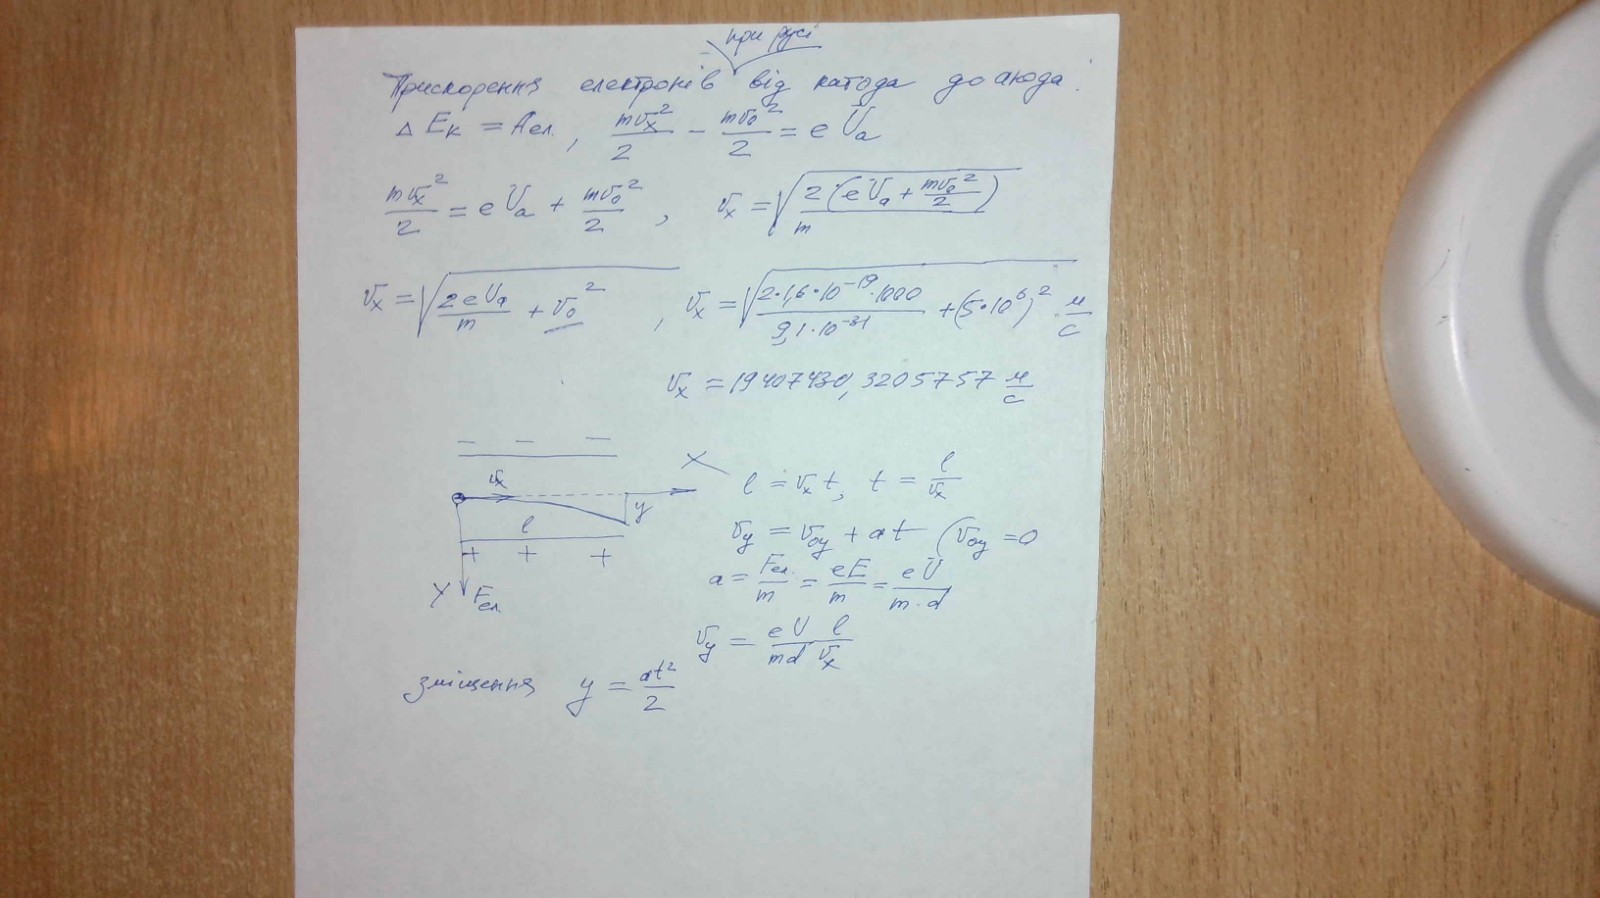 при русі
Прискорення електронів від катода до анода.
ΔEк = Aел., mvₓ²/2 − mv₀²/2 = eUₐ
mvₓ²/2 = eUₐ + mv₀²/2, vₓ = √(2(eUₐ + mv₀²/2)/m)
vₓ = √(2eUₐ/m + v₀²), vₓ = √(2·1,6·10⁻¹⁹·1000/9,1·10⁻³¹ + (5·10⁶)²) · м/с
vₓ = 19407430,3205757 м/с
− − −
vₓ X
y
l
+ + +
Y Fел.
l = vₓt, t = l/vₓ
v_y = v₀y + at (v₀y = 0
a = Fел./m = eE/m = eU/m·d
v_y = eU/md l/vₓ
зміщення y = at²/2